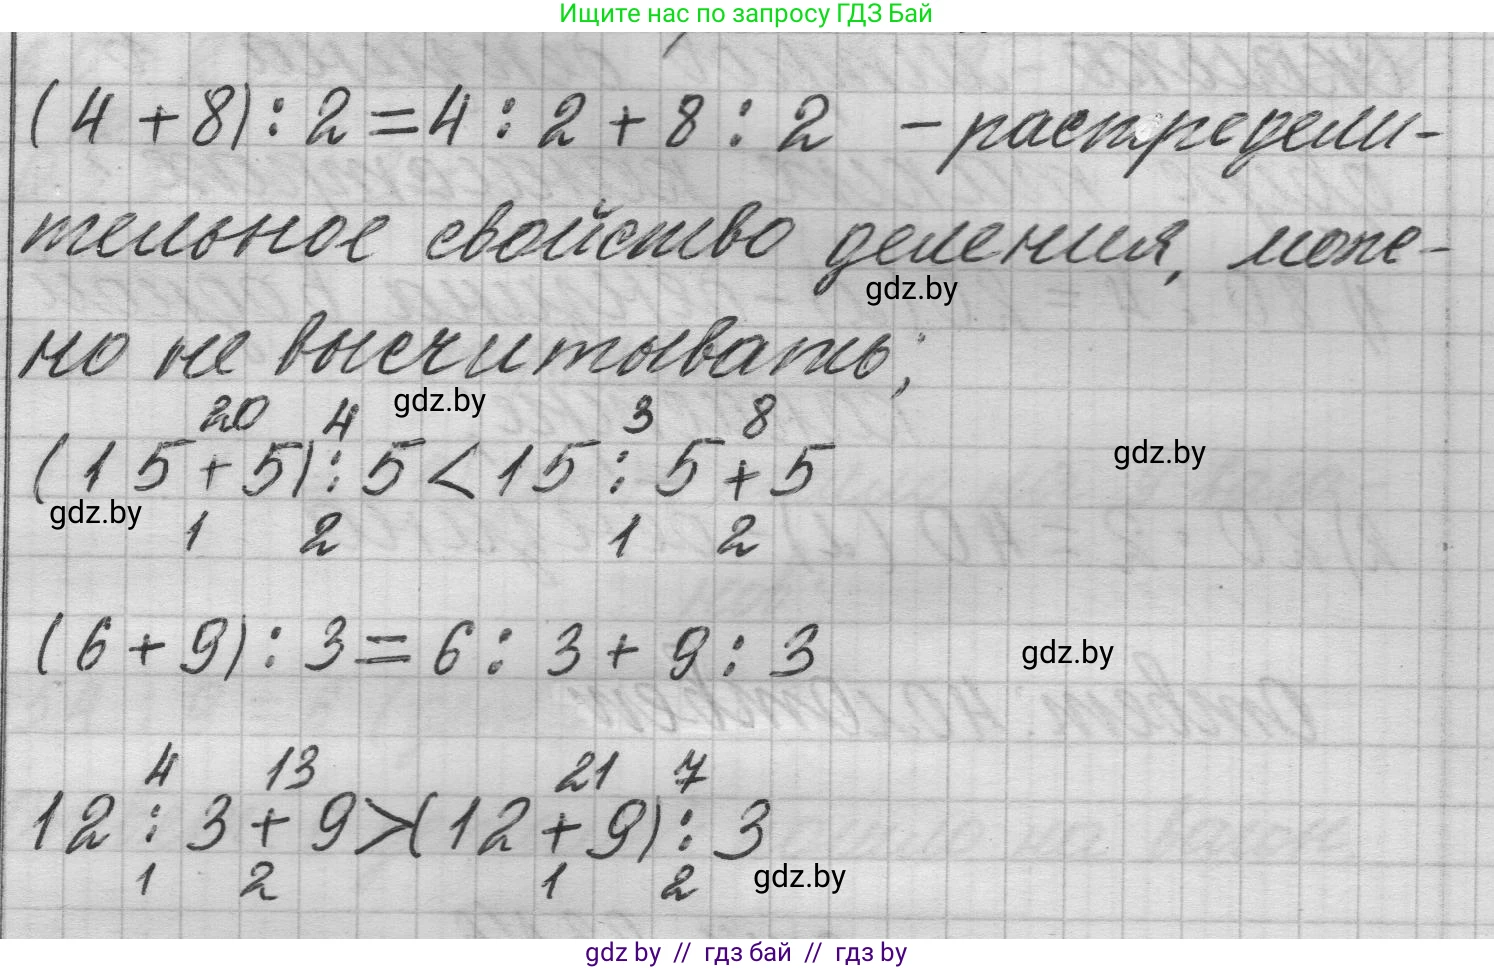 Ищите нас по запросу ГДЗ Бай
(4 + 8) : 2 = 4 : 2 + 8 : 2 – распредели-
тельное свойство деления, мож-
но не высчитывать;
gdz.by
20 4 gdz.by 3 8
(15 + 5) : 5 < 15 : 5 + 5
gdz.by
gdz.by
1 2 1 2
(6 + 9) : 3 = 6 : 3 + 9 : 3
gdz.by
4 13 21 7
12 : 3 + 9 > (12 + 9) : 3
1 2 1 2
gdz.by
gdz by // гдз бай // гдз by